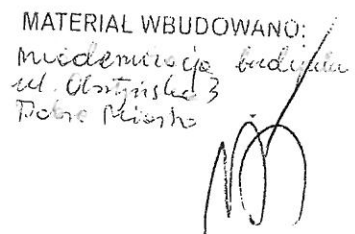 MATERIAŁ WBUDOWANO:
modernizacja budynku
ul. Olsztyńska 3
Dobre Miasto